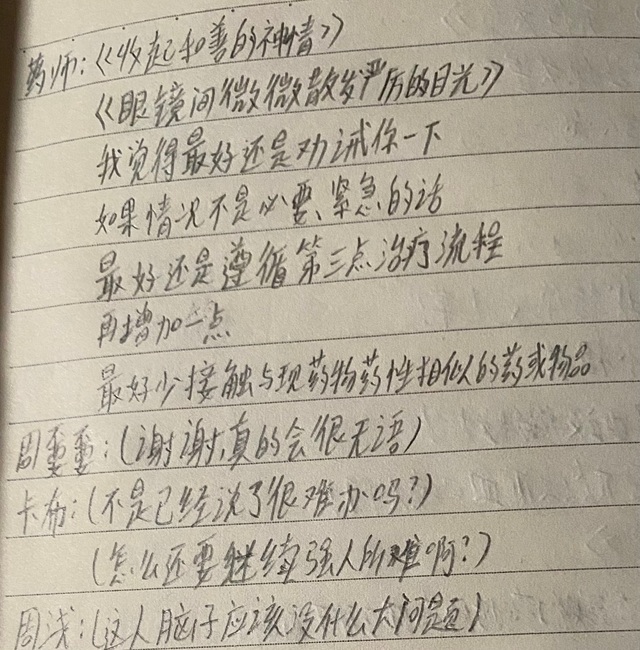 药师:《收起和善的神情》
《眼镜间微微散发严厉的目光》
我觉得最好还是劝诫你一下
如果情况不是必要、紧急的话
最好还是遵循第三点治疗流程
再增加一点
最好少接触与现药物药性相似的药或物品
周雯雯:(谢谢,真的会很无语)
卡布:(不是已经说了很难办吗?)
(怎么还要继续强人所难啊?)
周浅:(这人脑子应该没什么大问题)